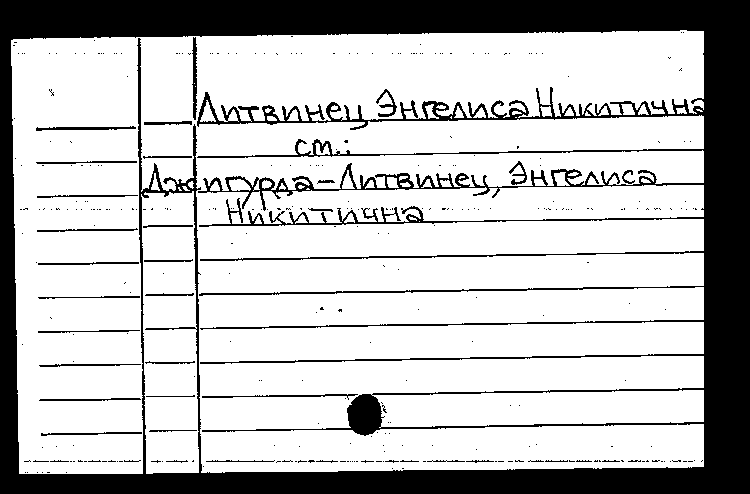 Литвинец Энгелиса Никитична
см.:
Джигурда-Литвинец, Энгелиса
Никитична